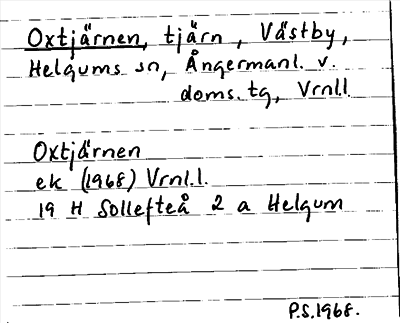 Oxtjärnen, tjärn, Västby,
Helgums sn, Ångermanl. v.
doms. tg, Vrnl.l.
Oxtjärnen
ek (1968) Vrnl.l.
19 H Sollefteå 2 a Helgum
P.S.1968.